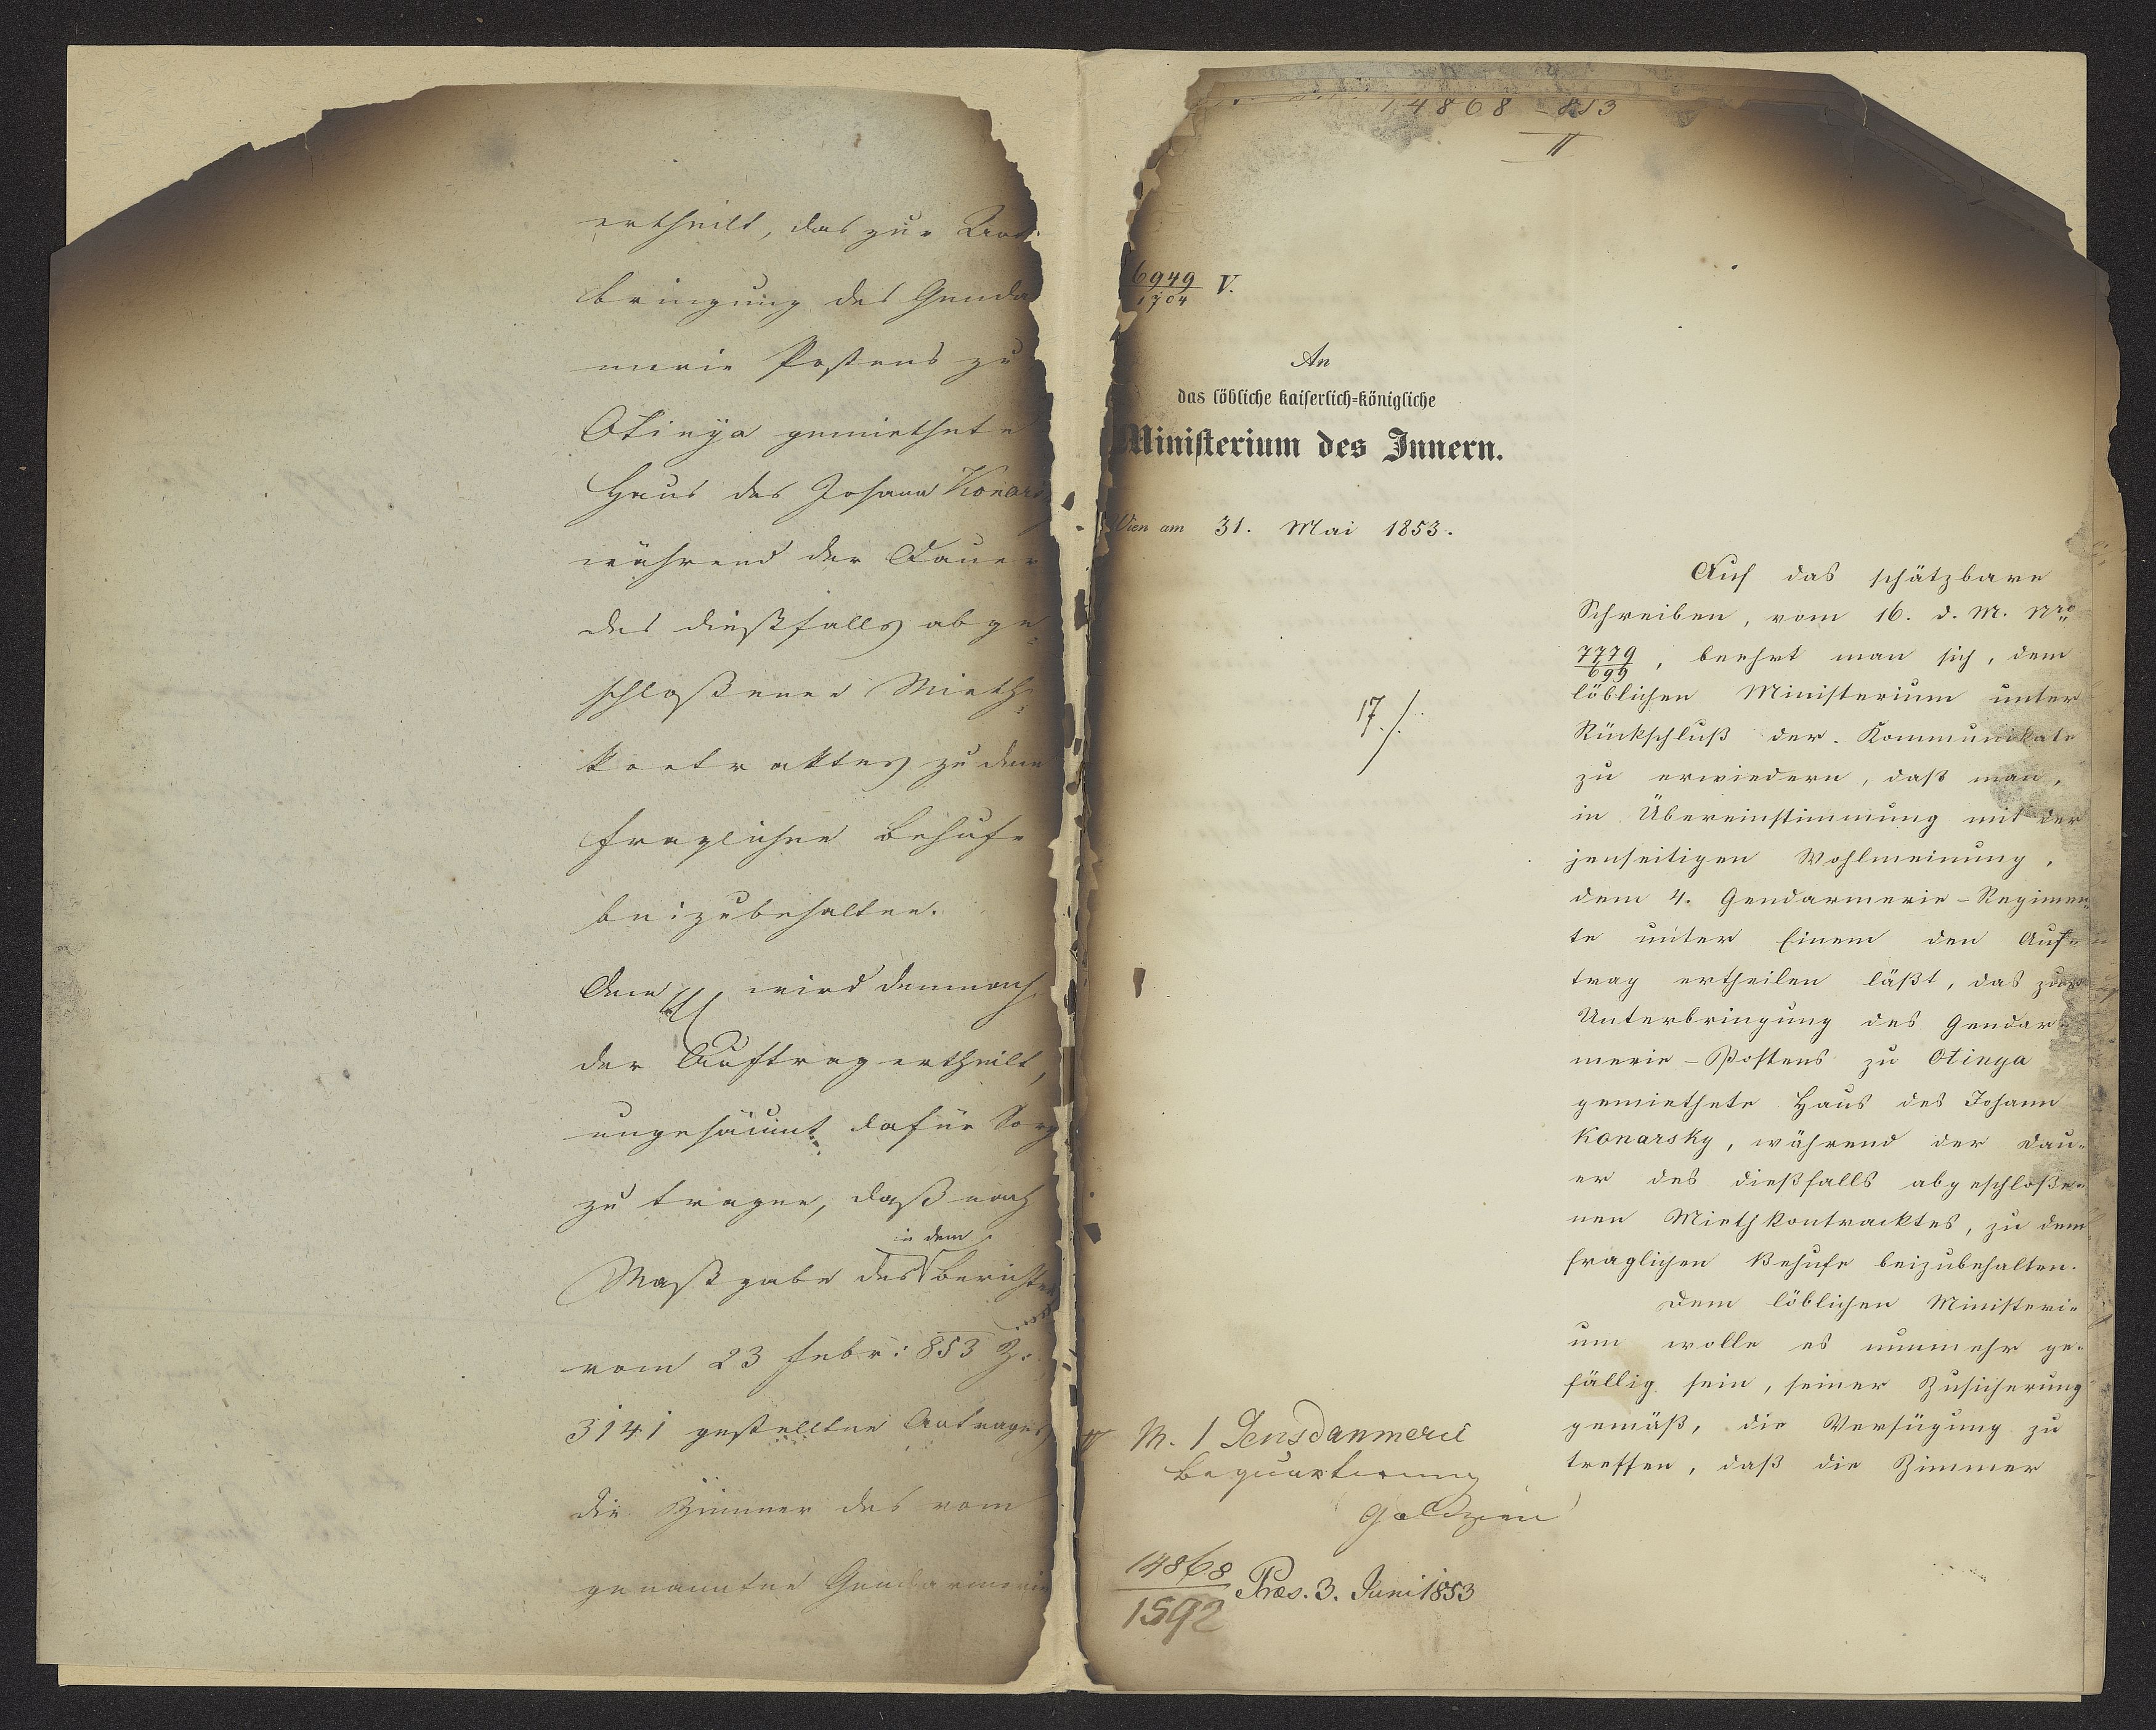 ertheilt, das zur
bringung des Genda
merie Postens zu
Otinya gemiethete
Haus des Johann Konars
während der Dauer
des dießfalls abge=
schloßenen Mieth=
kontraktes zu dem
fraglichen Behufe
beizubehalten.
wird demnach
der Auftrag ertheilt,
ungesäumt dafür Sorge
zu tragen, daß nach
in dem
Maßgabe des Berichtes
vom 23 Febr: 853 Z:
3141 gestellten Antrages
die Zimmer des vom
genannten Gendarmerie
14868-853
II
6949
1704 V.
An
das löbliche kaiserlich-königliche
Ministerium des Innern.
Wien am 31. Mai 1853.
17./.
M. 1 Gensdarmerie
bequartirung
Galizien
14868
1592 Præs. 3. Juni 1853
Auf das schätzbare
Schreiben, vom 16. d. M. Nro
7779
699, beehrt man sich, dem
löblichen Ministerium unter
Rückschluß der Kommunikate
zu erwiedern, daß man,
in Übereinstimmung mit der
jenseitigen Wohlmeinung,
dem 4. Gendarmerie-Regimen=
te unter Einem den Auf=
trag ertheilen läßt, das zur
Unterbringung des Gendar=
merie-Postens zu Otinya
gemiethete Haus des Johann
Konarsky, während der Dau=
er des dießfalls abgeschloße=
nen Miethkontracktes, zu dem
fraglichen Behufe beizubehalten.
Dem löblichen Ministeri=
um wolle es nunmehr ge=
fällig sein, seiner Zusicherung
gemäß, die Verfügung zu
treffen, daß die Zimmer